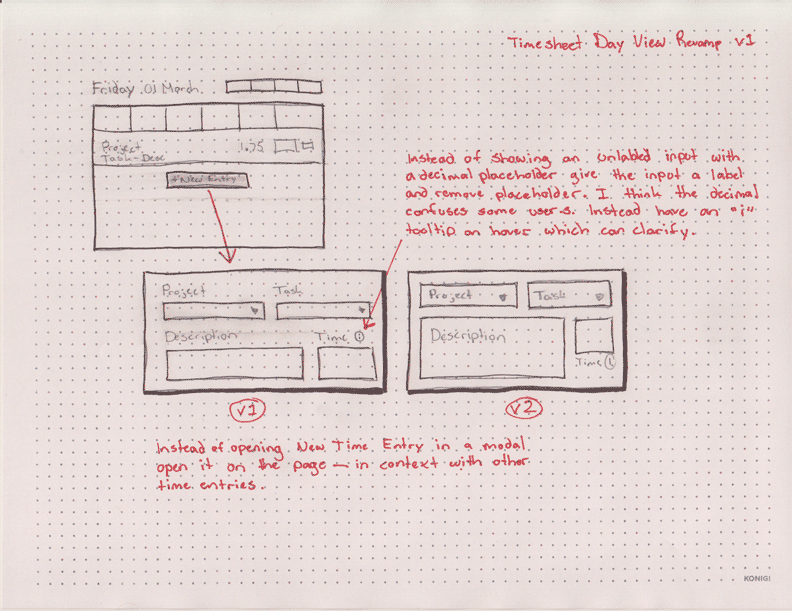 Timesheet Day View Revamp v1
Friday 01 March
Project
Task-Desc
1.75
+New Entry
Instead of showing an unlabled input with
a decimal placeholder give the input a label
and remove placeholder. I think the decimal
confuses some users. Instead have an "i"
tooltip on hover which can clarify.
Project
Task
Description
Time i
Project
Task
Description
Time i
v1
v2
Instead of opening New Time Entry in a modal
open it on the page – in context with other
time entries.
KONIGI